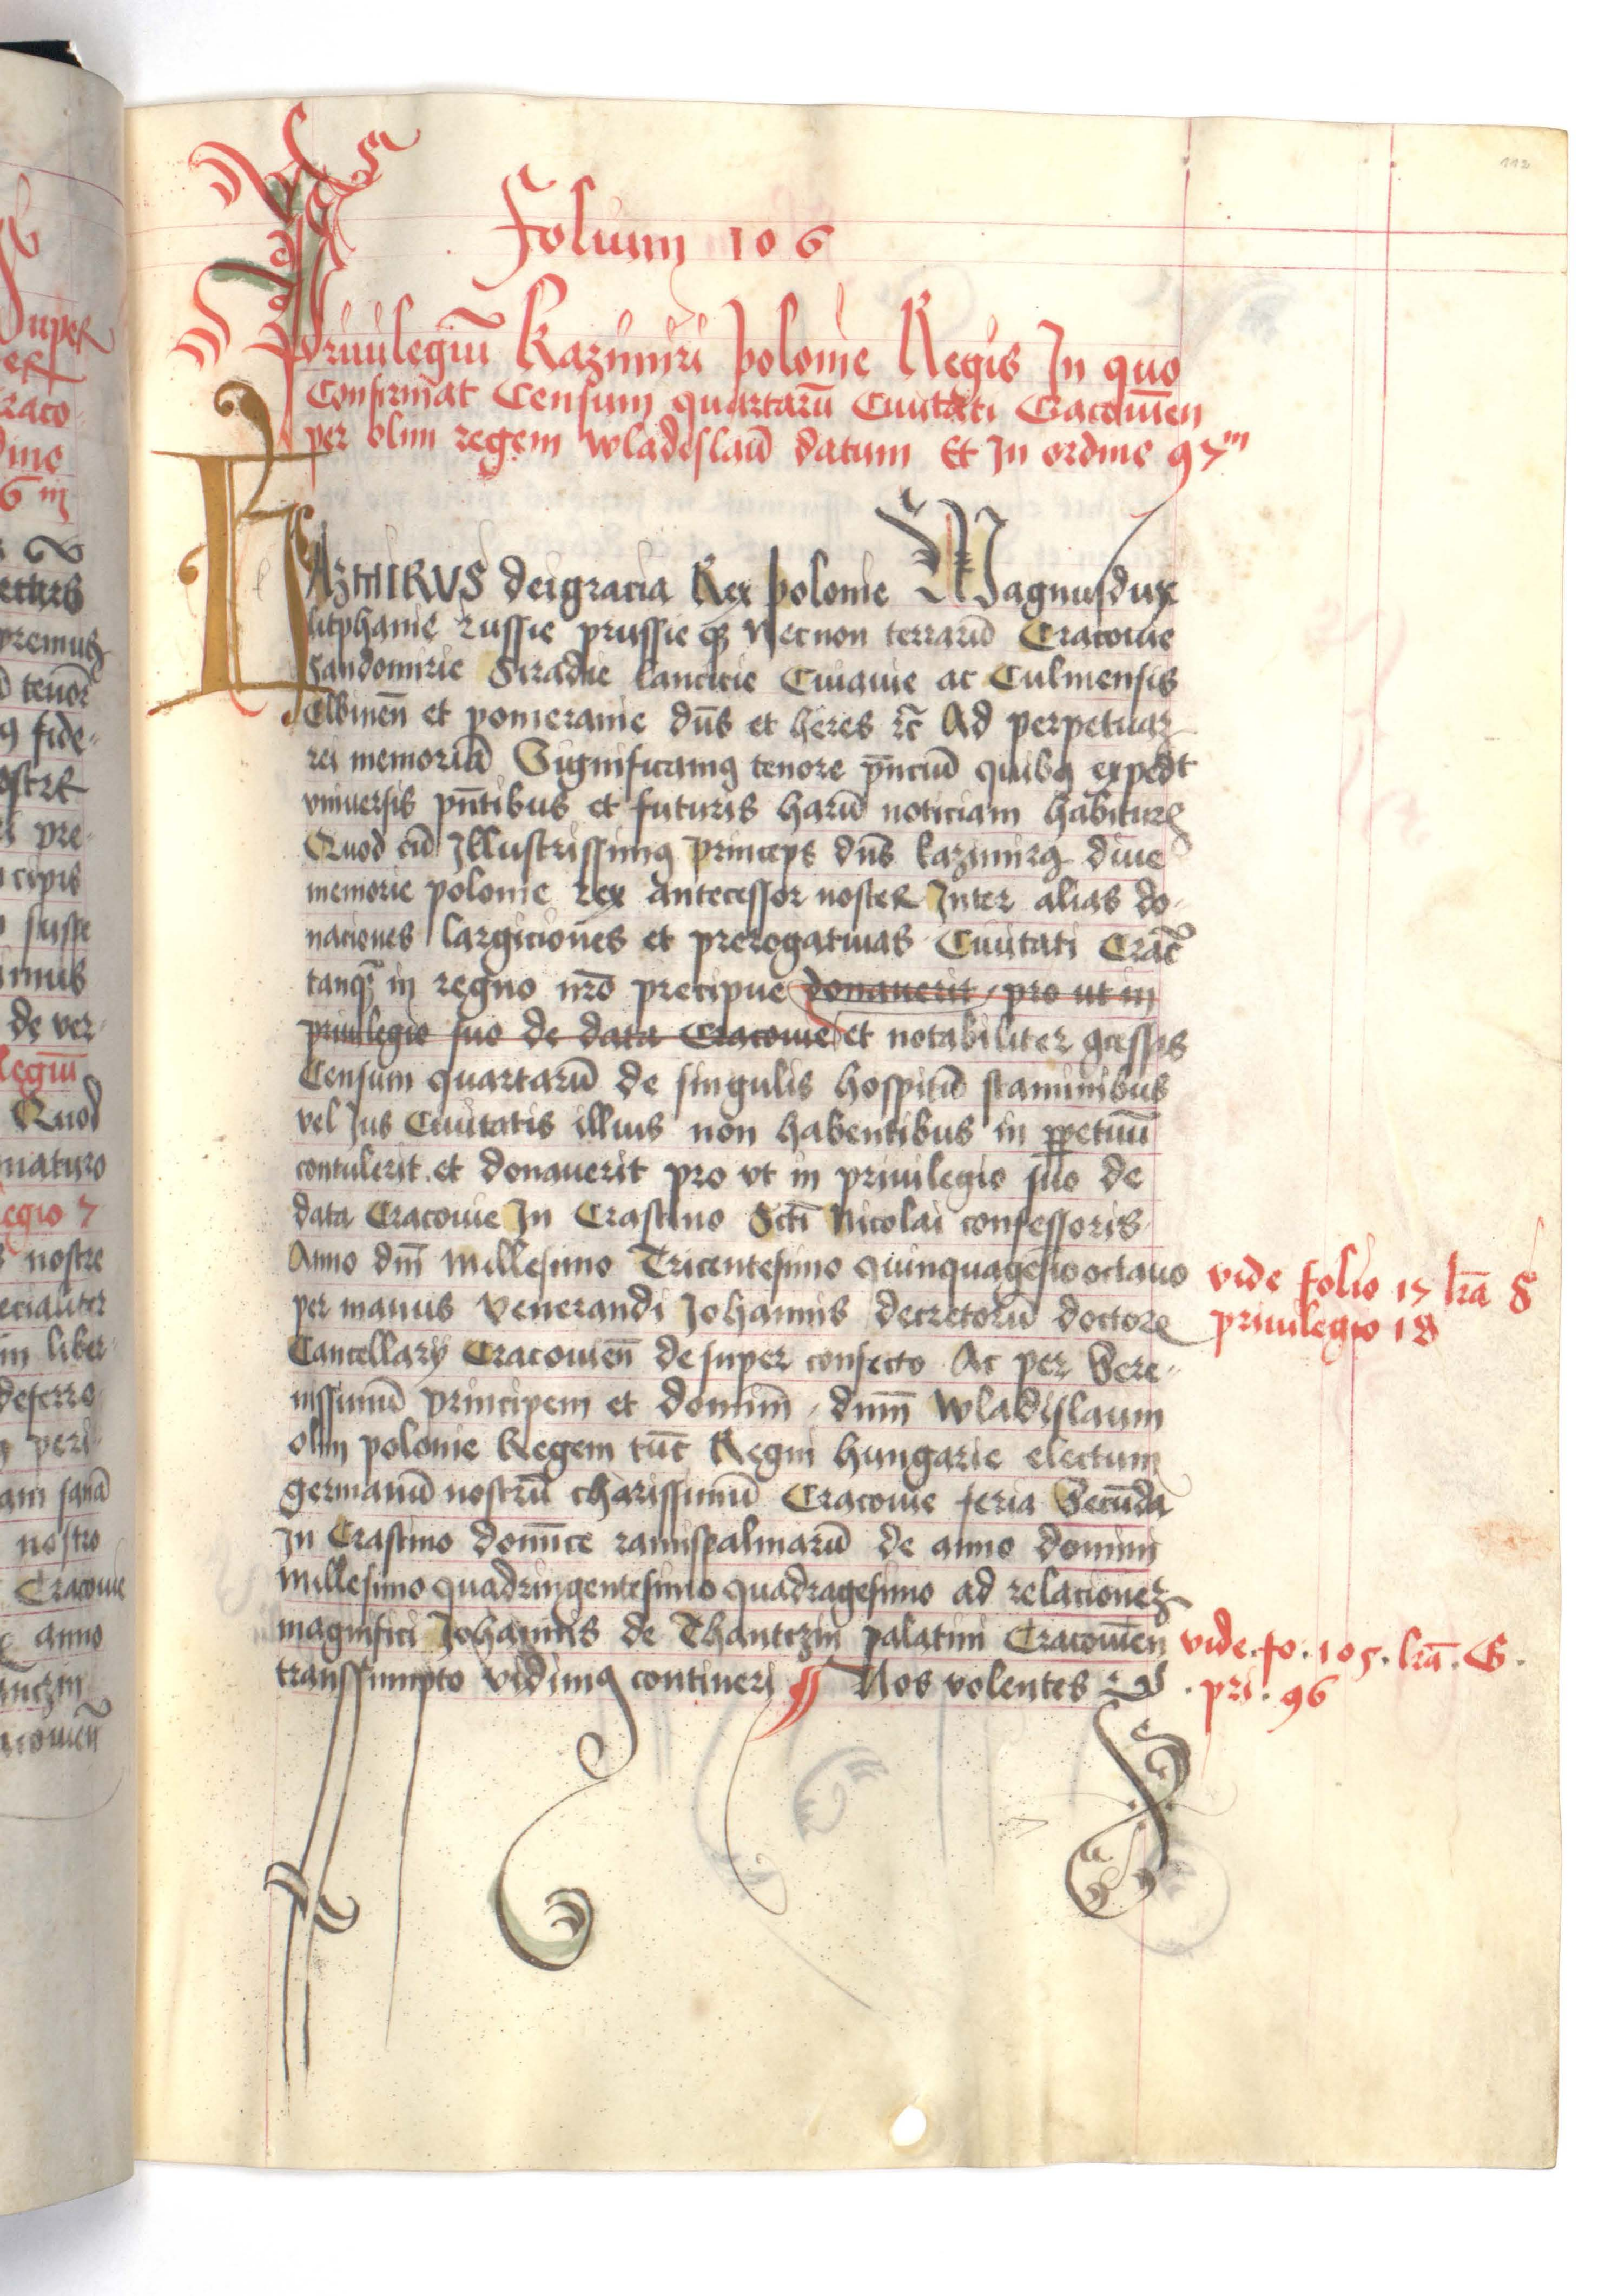 112
Folium 106
Priuilegiũ Kazimiri polonie Regis In quo
Confirmat Censum quartarũ Ciuitati Cracouieñ
per olim regem wladislaũ datum Et In ordine 97ᵐ
KAZMIRVS dei gracia Rex polonie Magnus dux
litphanie russie prussie qꝫ Necnon terrarũ Cracouie
Sandomirie Siradie lancicie Cuiauie ac Culmensis
Elbineñ et pomeranie dñs et heres ⁊c̃ Ad perpetuaꝫ
rei memoriã Significamꝰ tenore p̃nciũ quibꝰ expedit
vniuersis pñtibus et futuris harũ noticiam habituꝝ
Quod cũ Illustrissimꝰ princeps dñs kazimirꝰ diue
memorie polonie rex antecessor noster Inter alias do-
naciones largiciones et prerogatiuas Ciuitati Crac̃
tanqꝫ in regno nr̃o precipue donauerit / pro ut in
priuilegio suo de data Cracouie et notabiliter ꝯcessis
Censum quartarũ de singulis hospitũ staminibus
vel Jus Ciuitatis illius non habentibus in ꝑpetuũ
contulerit et donauerit pro vt in priuilegio suo de
data Cracouie In Crastino Scti Nicolai confessoris
Anno dñi Millesimo Tricentesimo quinquagesĩo octauo
per manus Venerandi Johannis decretorũ doctore
Cancellarÿ Cracouieñ desuper confecto Ac per Sere-
nissimũ principem et dominũ / dñm Wladislaum
olim polonie Regem tũc Regni hungarie electum
germanũ nostrũ charissimũ Cracouie feria Secũda
In Crastino domĩce ramispalmarũ de anno domini
Millesimo quadringentesimo quadragesimo ad relacioneꝫ
magnifici Johannis de Thantczin palatini Cracouieñ
transsumpto vidimꝰ contineri Nos volentes ⁊c
vide folio 17 lr̃a S
priuilegio 18
vide . fo . 105 . lr̃a . G .
. pri . 96